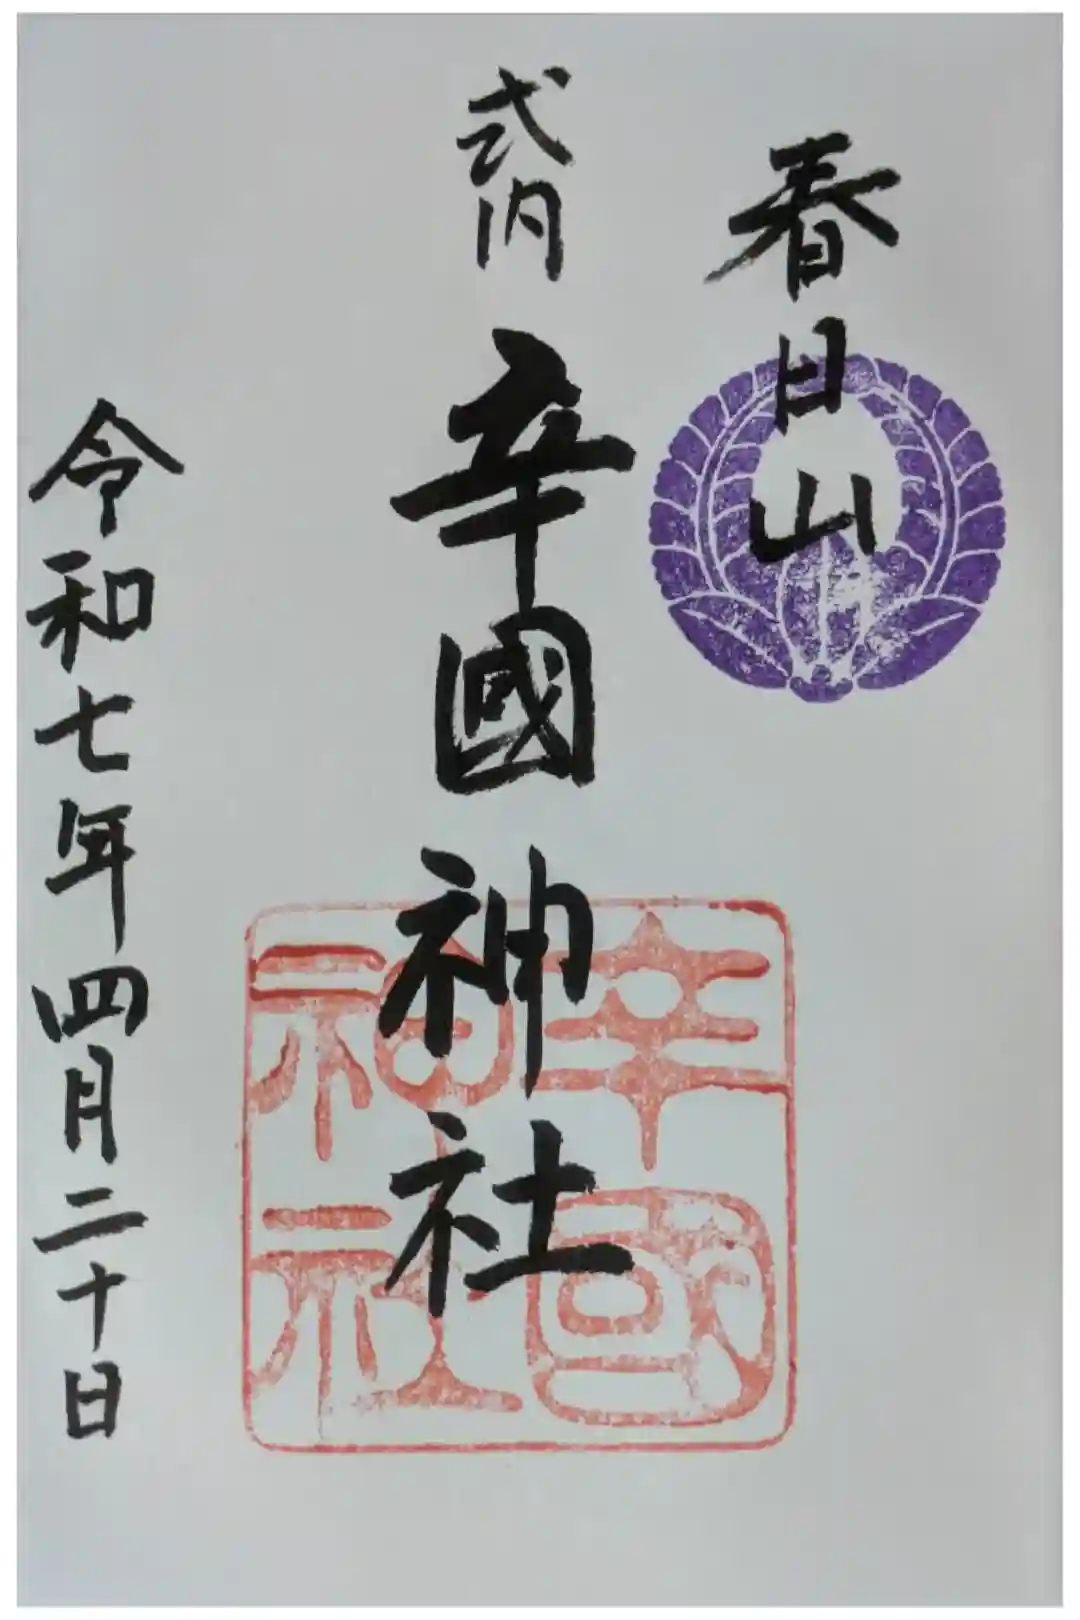 春日山
式内
辛國神社
辛國神社
令和七年四月二十日